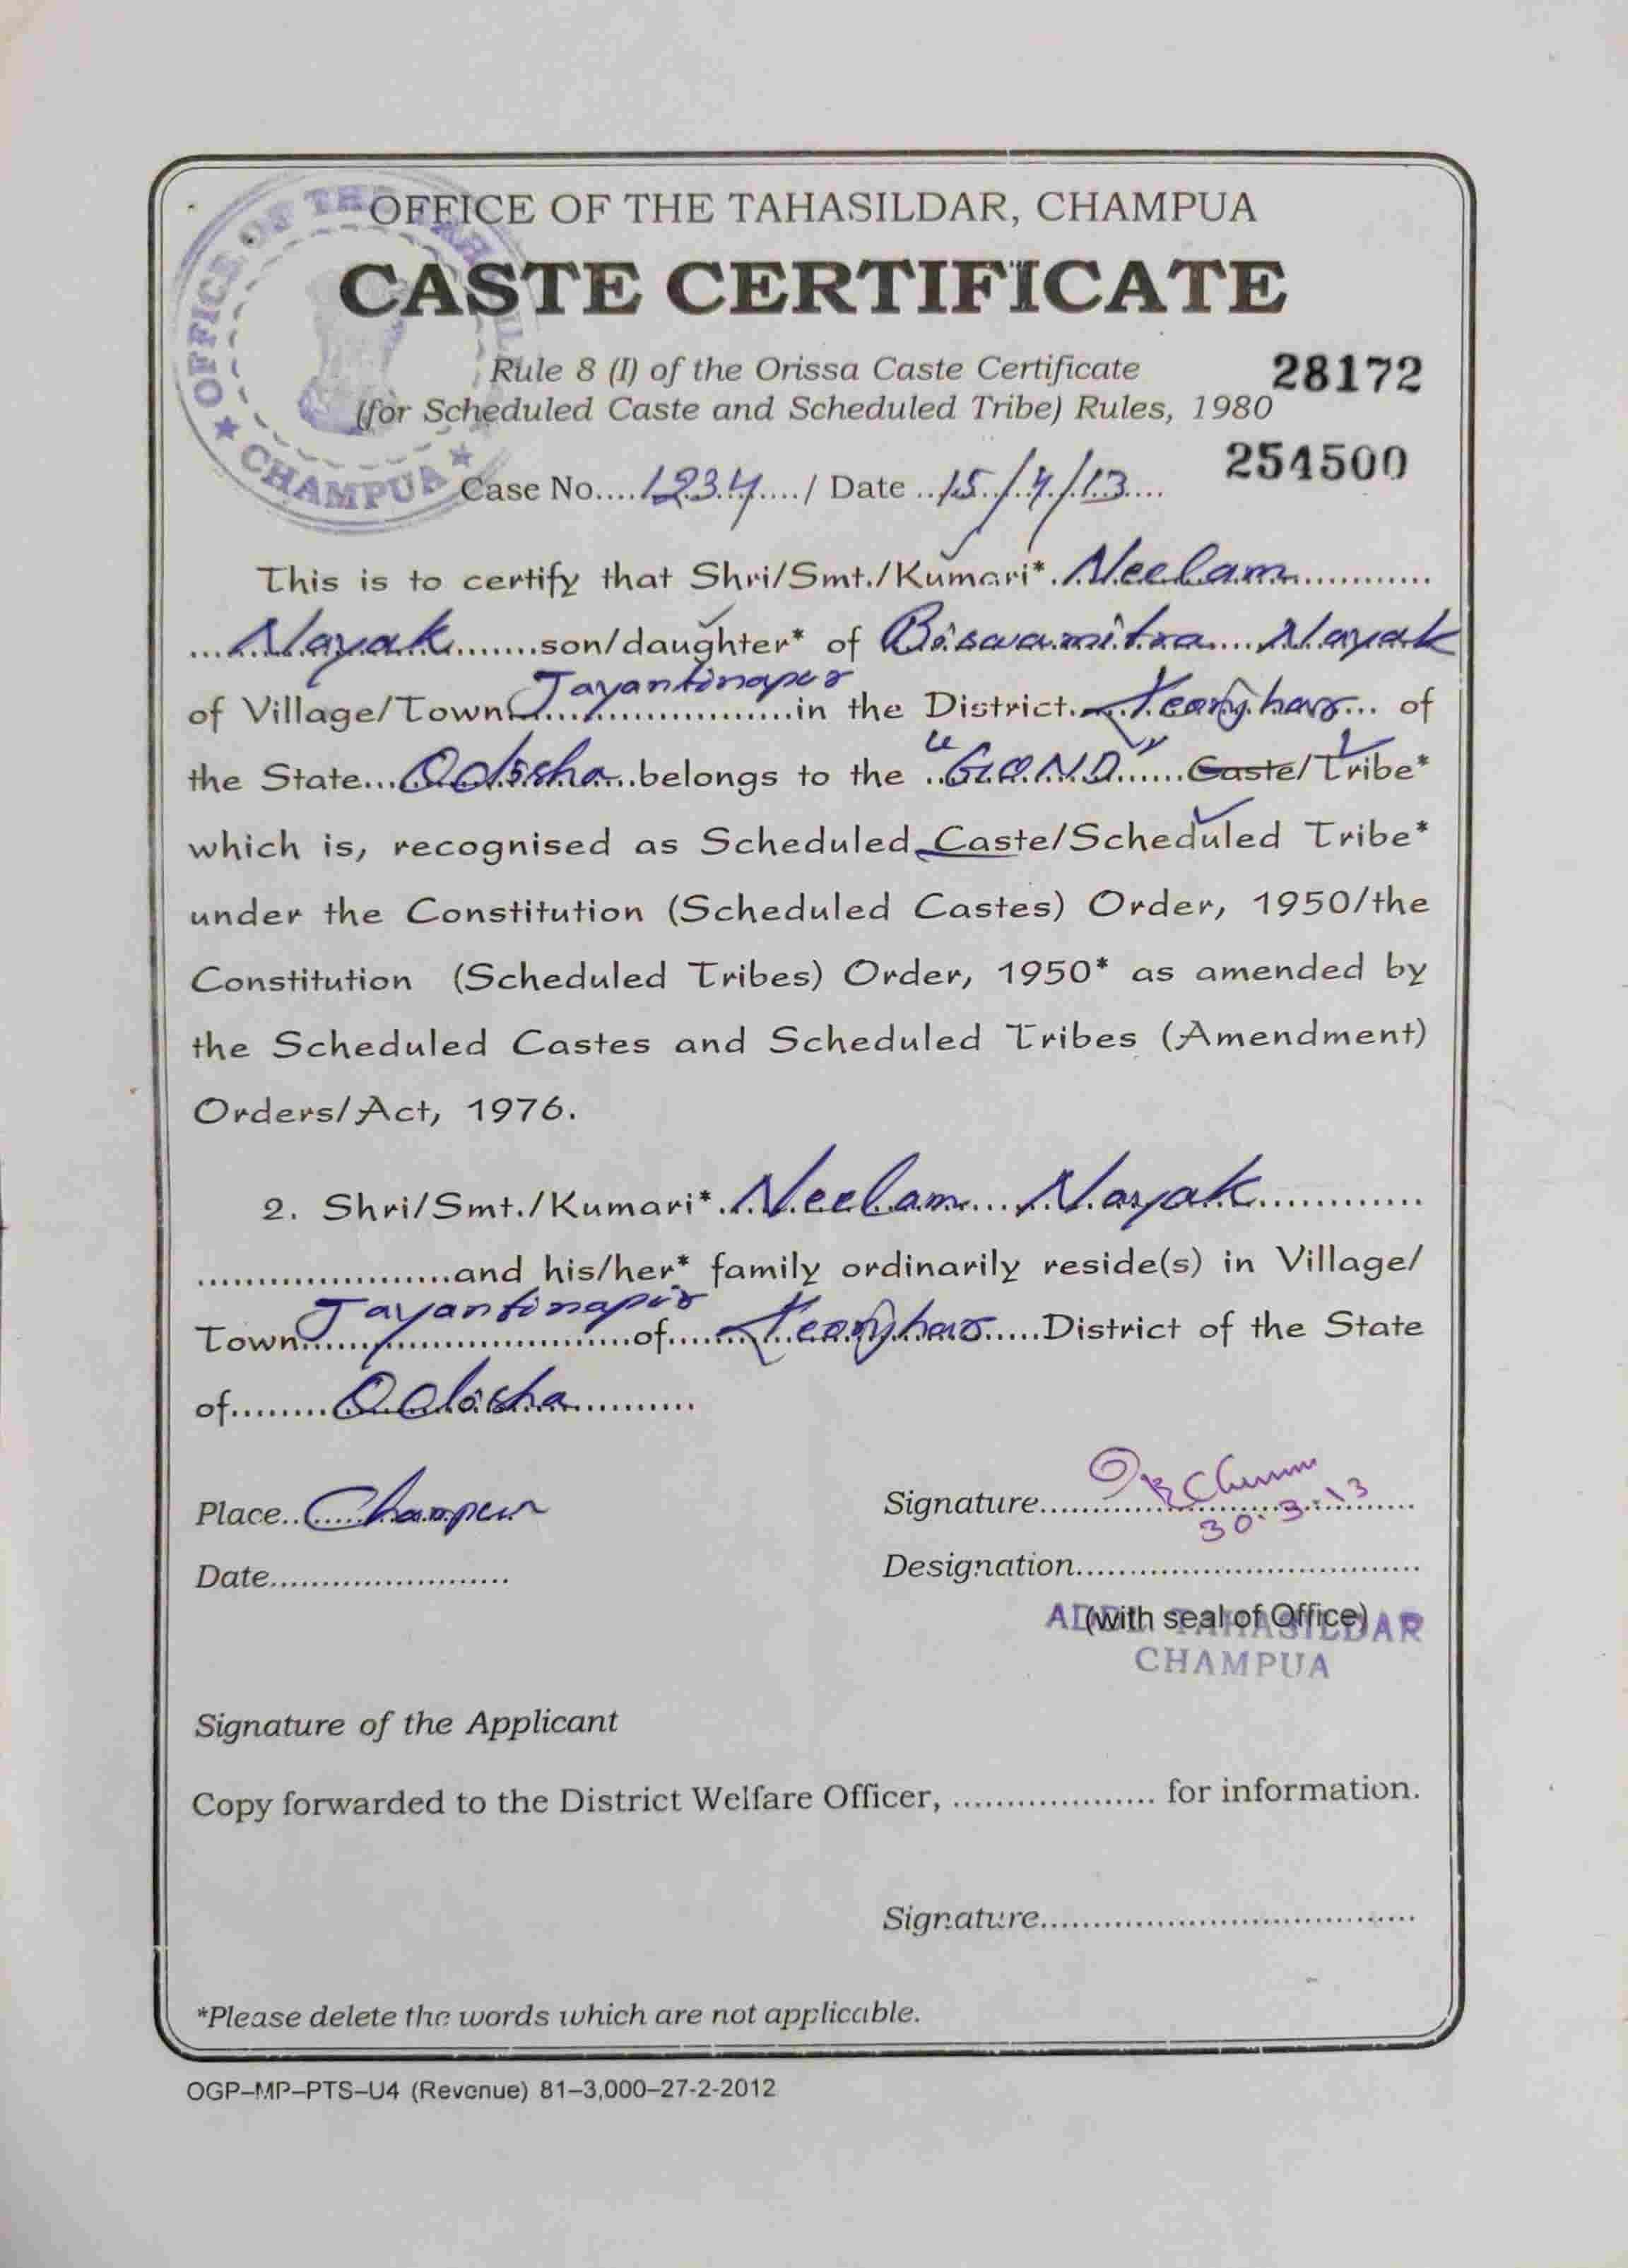 OFFICE OF THE TAHASILDAR, CHAMPUA
CASTE CERTIFICATE
Rule 8 (I) of the Orissa Caste Certificate
(for Scheduled Caste and Scheduled Tribe) Rules, 1980
28172
254500
Case No....1234..../ Date ..15/4/13....
This is to certify that Shri/Smt./Kumari*. Neelam............
...Nayak.......son/daughter* of Biswamitra....Nayak
of Village/Town Jayantinapur in the District. Keonjhar... of
the State...Odisha..belongs to the "GOND"......Caste/Tribe*
which is, recognised as Scheduled Caste/Scheduled Tribe*
under the Constitution (Scheduled Castes) Order, 1950/the
Constitution (Scheduled Tribes) Order, 1950* as amended by
the Scheduled Castes and Scheduled Tribes (Amendment)
Orders/Act, 1976.
2. Shri/Smt./Kumari*. Neelam....Nayak.............
......................and his/her* family ordinarily reside(s) in Village/
Town Jayantinapur of....Keonjhar.....District of the State
of........Odisha............
Place..Champua
Signature........................
30.3.13
Date........................
Designation..................................
(with seal of Office)
ADDL. TAHASILDAR
CHAMPUA
Signature of the Applicant
Copy forwarded to the District Welfare Officer, .................... for information.
Signature....................................
*Please delete the words which are not applicable.
OGP–MP–PTS–U4 (Revenue) 81–3,000–27-2-2012
OFFICE OF THE TAHASILDAR
★ CHAMPUA ★